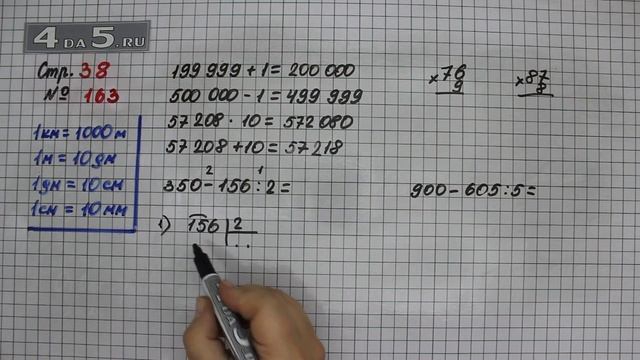 4DA5.RU
Стр. 38
№ 163
1км = 1000м
1м = 10дм
1дм = 10см
1см = 10мм
199 999 + 1 = 200 000
500 000 - 1 = 499 999
57 208 · 10 = 572 080
57 208 + 10 = 57 218
2 1
350 - 156 : 2 =
1) 156 | 2
. .
× 76
9
× 87
8
900 - 605 : 5 =